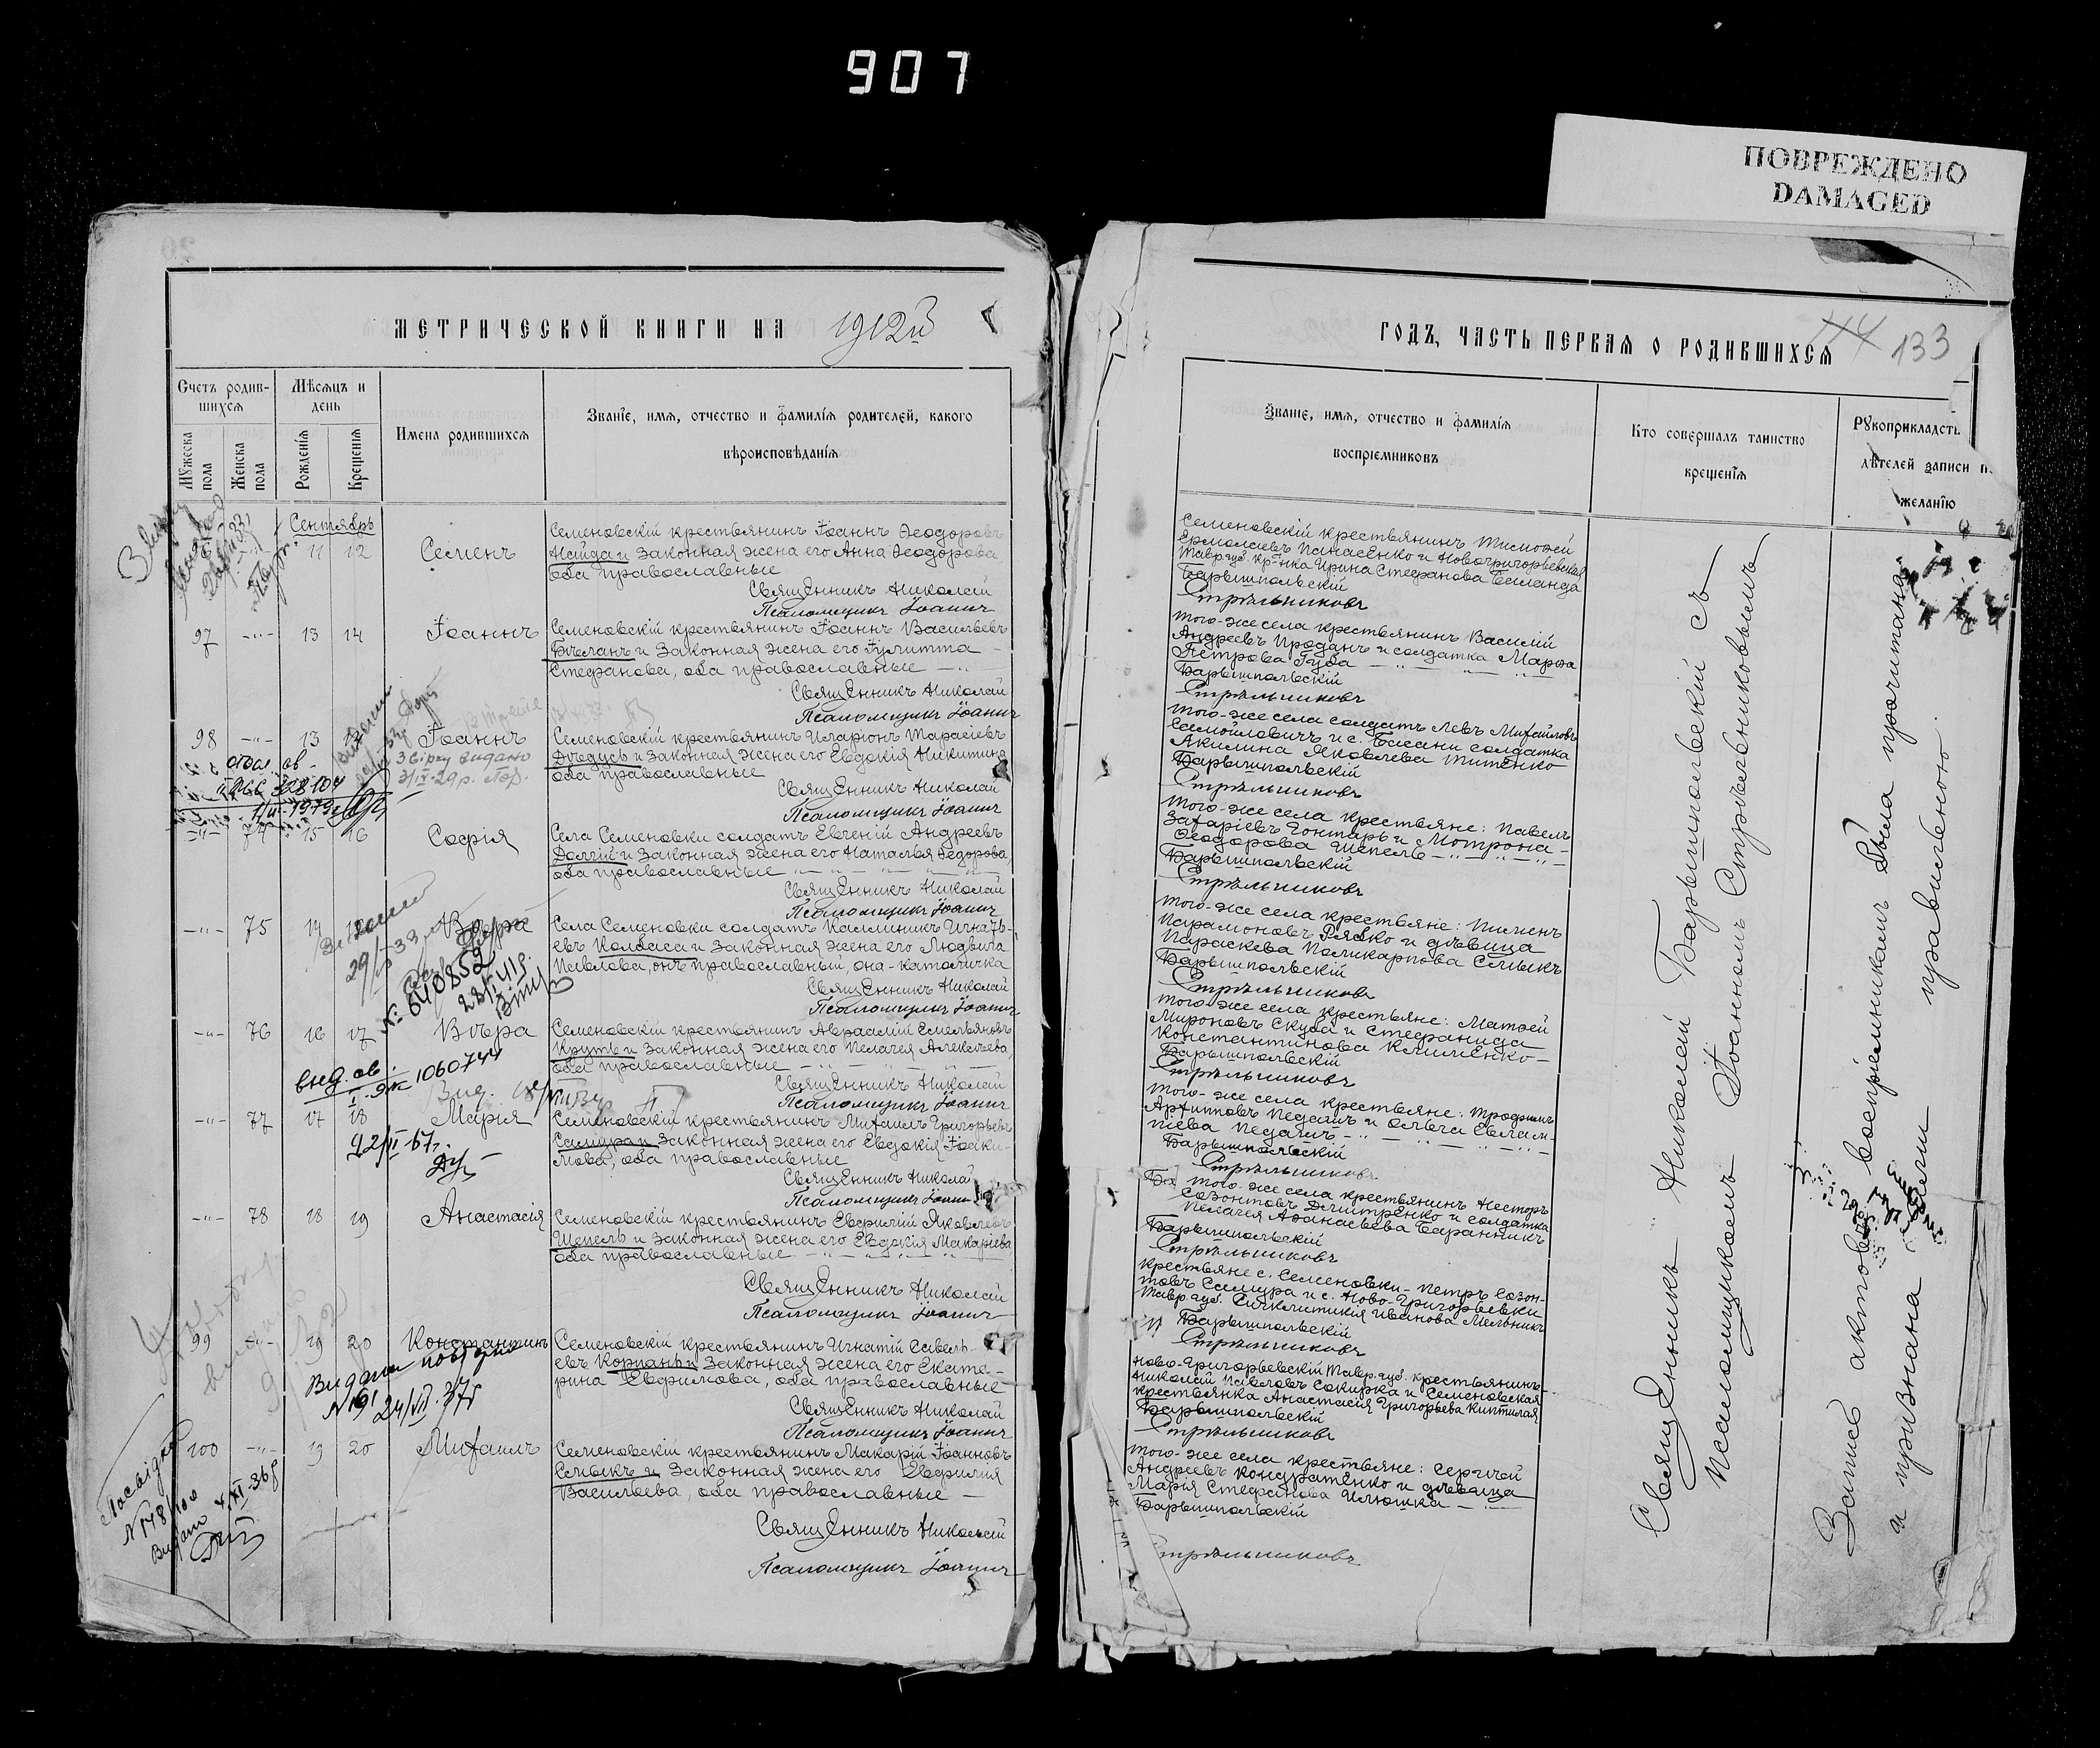 907
ПОВРЕЖДЕНО
DAMAGED
МЕТРИЧЕСКОЙ КНИГИ НА 1912й
Счетъ родив-
шихся
Мѣсяцъ и
день
Мужеска
пола
Женска
пола
Рожденія
Крещенія
Имена родившихся
Званіе, имя, отчество и фамилія родителей, какого
вѣроисповѣданія
Сентябрь
11 12 Семенъ
Семеновскій крестьянинъ Іоаннъ Ѳеодоровъ
Найда и законная жена его Анна Ѳеодорова
оба православные
Священникъ Николай
Псаломщикъ Іоаннъ
97 -"- 13 14 Іоаннъ
Семеновскій крестьянинъ Іоаннъ Васильевъ
Бѣланъ и законная жена его Іулитта
Стефанова, оба православные
Священникъ Николай
Псаломщикъ Іоаннъ
98 -"- 13 Іоаннъ
Семеновскій крестьянинъ Иларіонъ Тарасіевъ
Дѣдусь и законная жена его Евдокія Никитина
оба православные
Священникъ Николай
Псаломщикъ Іоаннъ
З вірку видано
328104
-"- 74 15 16 Софія
Села Семеновки солдатъ Евгеній Андреевъ
Долгій и законная жена его Наталья Ѳедорова,
оба православные
Священникъ Николай
Псаломщикъ Іоаннъ
-"- 75 14 Вѣра
Села Семеновки солдатъ Каллиникъ Игнать-
евъ Колбаса и законная жена его Людвига
Павлова, онъ православный, она-католичка
Священникъ Николай
Псаломщикъ Іоаннъ
№ 640852
-"- 76 16 17 Вѣра
Семеновскій крестьянинъ Авраамій Емельяновъ
Круть и законная жена его Пелагея Алексѣева,
оба православные
Священникъ Николай
Псаломщикъ Іоаннъ
выд. св.
1060744
-"- 77 17 18 Марія
Семеновскій крестьянинъ Михаилъ Григорьевъ
Самура и законная жена его Евдокія Іоаки-
мова, оба православные
Священникъ Николай
Псаломщикъ Іоаннъ
-"- 78 18 19 Анастасія
Семеновскій крестьянинъ Евфимій Яковлевъ
Шепель и законная жена его Евдокія Макаріева
оба православные
Священникъ Николай
Псаломщикъ Іоаннъ
99 -"- 19 20 Константинъ
Семеновскій крестьянинъ Игнатій Савель-
евъ Корпань и законная жена его Екате-
рина Евфимова, оба православные
Священникъ Николай
Псаломщикъ Іоаннъ
Видано повторно
24/VII.37г
100 -"- 19 20 Михаилъ
Семеновскій крестьянинъ Макарій Іоанновъ
Смыкъ и законная жена его Евфимія
Васильева, оба православные
Священникъ Николай
Псаломщикъ Іоаннъ
N 178/100
Видано 4/XI-36р
ГОДЪ, ЧАСТЬ ПЕРВАЯ О РОДИВШИХСЯ
133
Званіе, имя, отчество и фамилія
воспріемниковъ
Кто совершалъ таинство
крещенія
Рукоприкладст
дѣтелей записи п
желанію
Семеновскій крестьянинъ Тимоѳей
Ермолаевъ Панасенко и Новогригорьевская
Тавр.губ. кр-нка Ирина Стефанова Баланда
Барышпольскій
Стрѣльниковъ
Того-же села крестьянинъ Василій
Андреевъ Проданъ и солдатка Марѳа
Петрова Губа
Барышпольскій
Стрѣльниковъ
Того-же села солдатъ Левъ Михайловъ
Самойловичъ и с. Басани солдатка
Акилина Яковлева Титенко
Барышпольскій
Стрѣльниковъ
Того-же села крестьяне: Павелъ
Захаріевъ Гонтарь и Мотрона
Ѳеодорова Шепель
Барышпольскій
Стрѣльниковъ
Того-же села крестьяне: Пименъ
Парамоновъ Рябко и дѣвица
Параскева Поликарпова Смыкъ
Барышпольскій
Стрѣльниковъ
Того-же села крестьяне: Матѳей
Мироновъ Скуба и Стефанида
Константинова Клименко
Барышпольскій
Стрѣльниковъ
Того-же села крестьяне: Трофимъ
Архиповъ Педашъ и Ольга Евлам-
піева Педашъ
Барышпольскій
Стрѣльниковъ
Того-же села крестьянинъ Несторъ
Созонтовъ Дмитренко и солдатка
Пелагея Аѳанасьева Баранникъ
Барышпольскій
Стрѣльниковъ
Крестьяне с. Семеновки-Петръ Созон-
товъ Самура и с. Ново-Григорьевки
Тавр.губ. Синклитикія Иванова Мельникъ
Барышпольскій
Стрѣльниковъ
Ново-Григорьевскій Тавр.губ. крестьянинъ
Николай Павловъ Сокирка и Семеновская
крестьянка Анастасія Григорьева Киптилая
Барышпольскій
Стрѣльниковъ
Того-же села крестьяне: Сергѣй
Андреевъ Кондратенко и дѣвица
Марія Стефанова Илюшка
Барышпольскій
Стрѣльниковъ
Священникъ Николай Барышпольскій съ
псаломщикомъ Іоанномъ Стрѣльниковымъ
Запись актовъ воспріемникамъ была прочитана
и признана ими правильною.